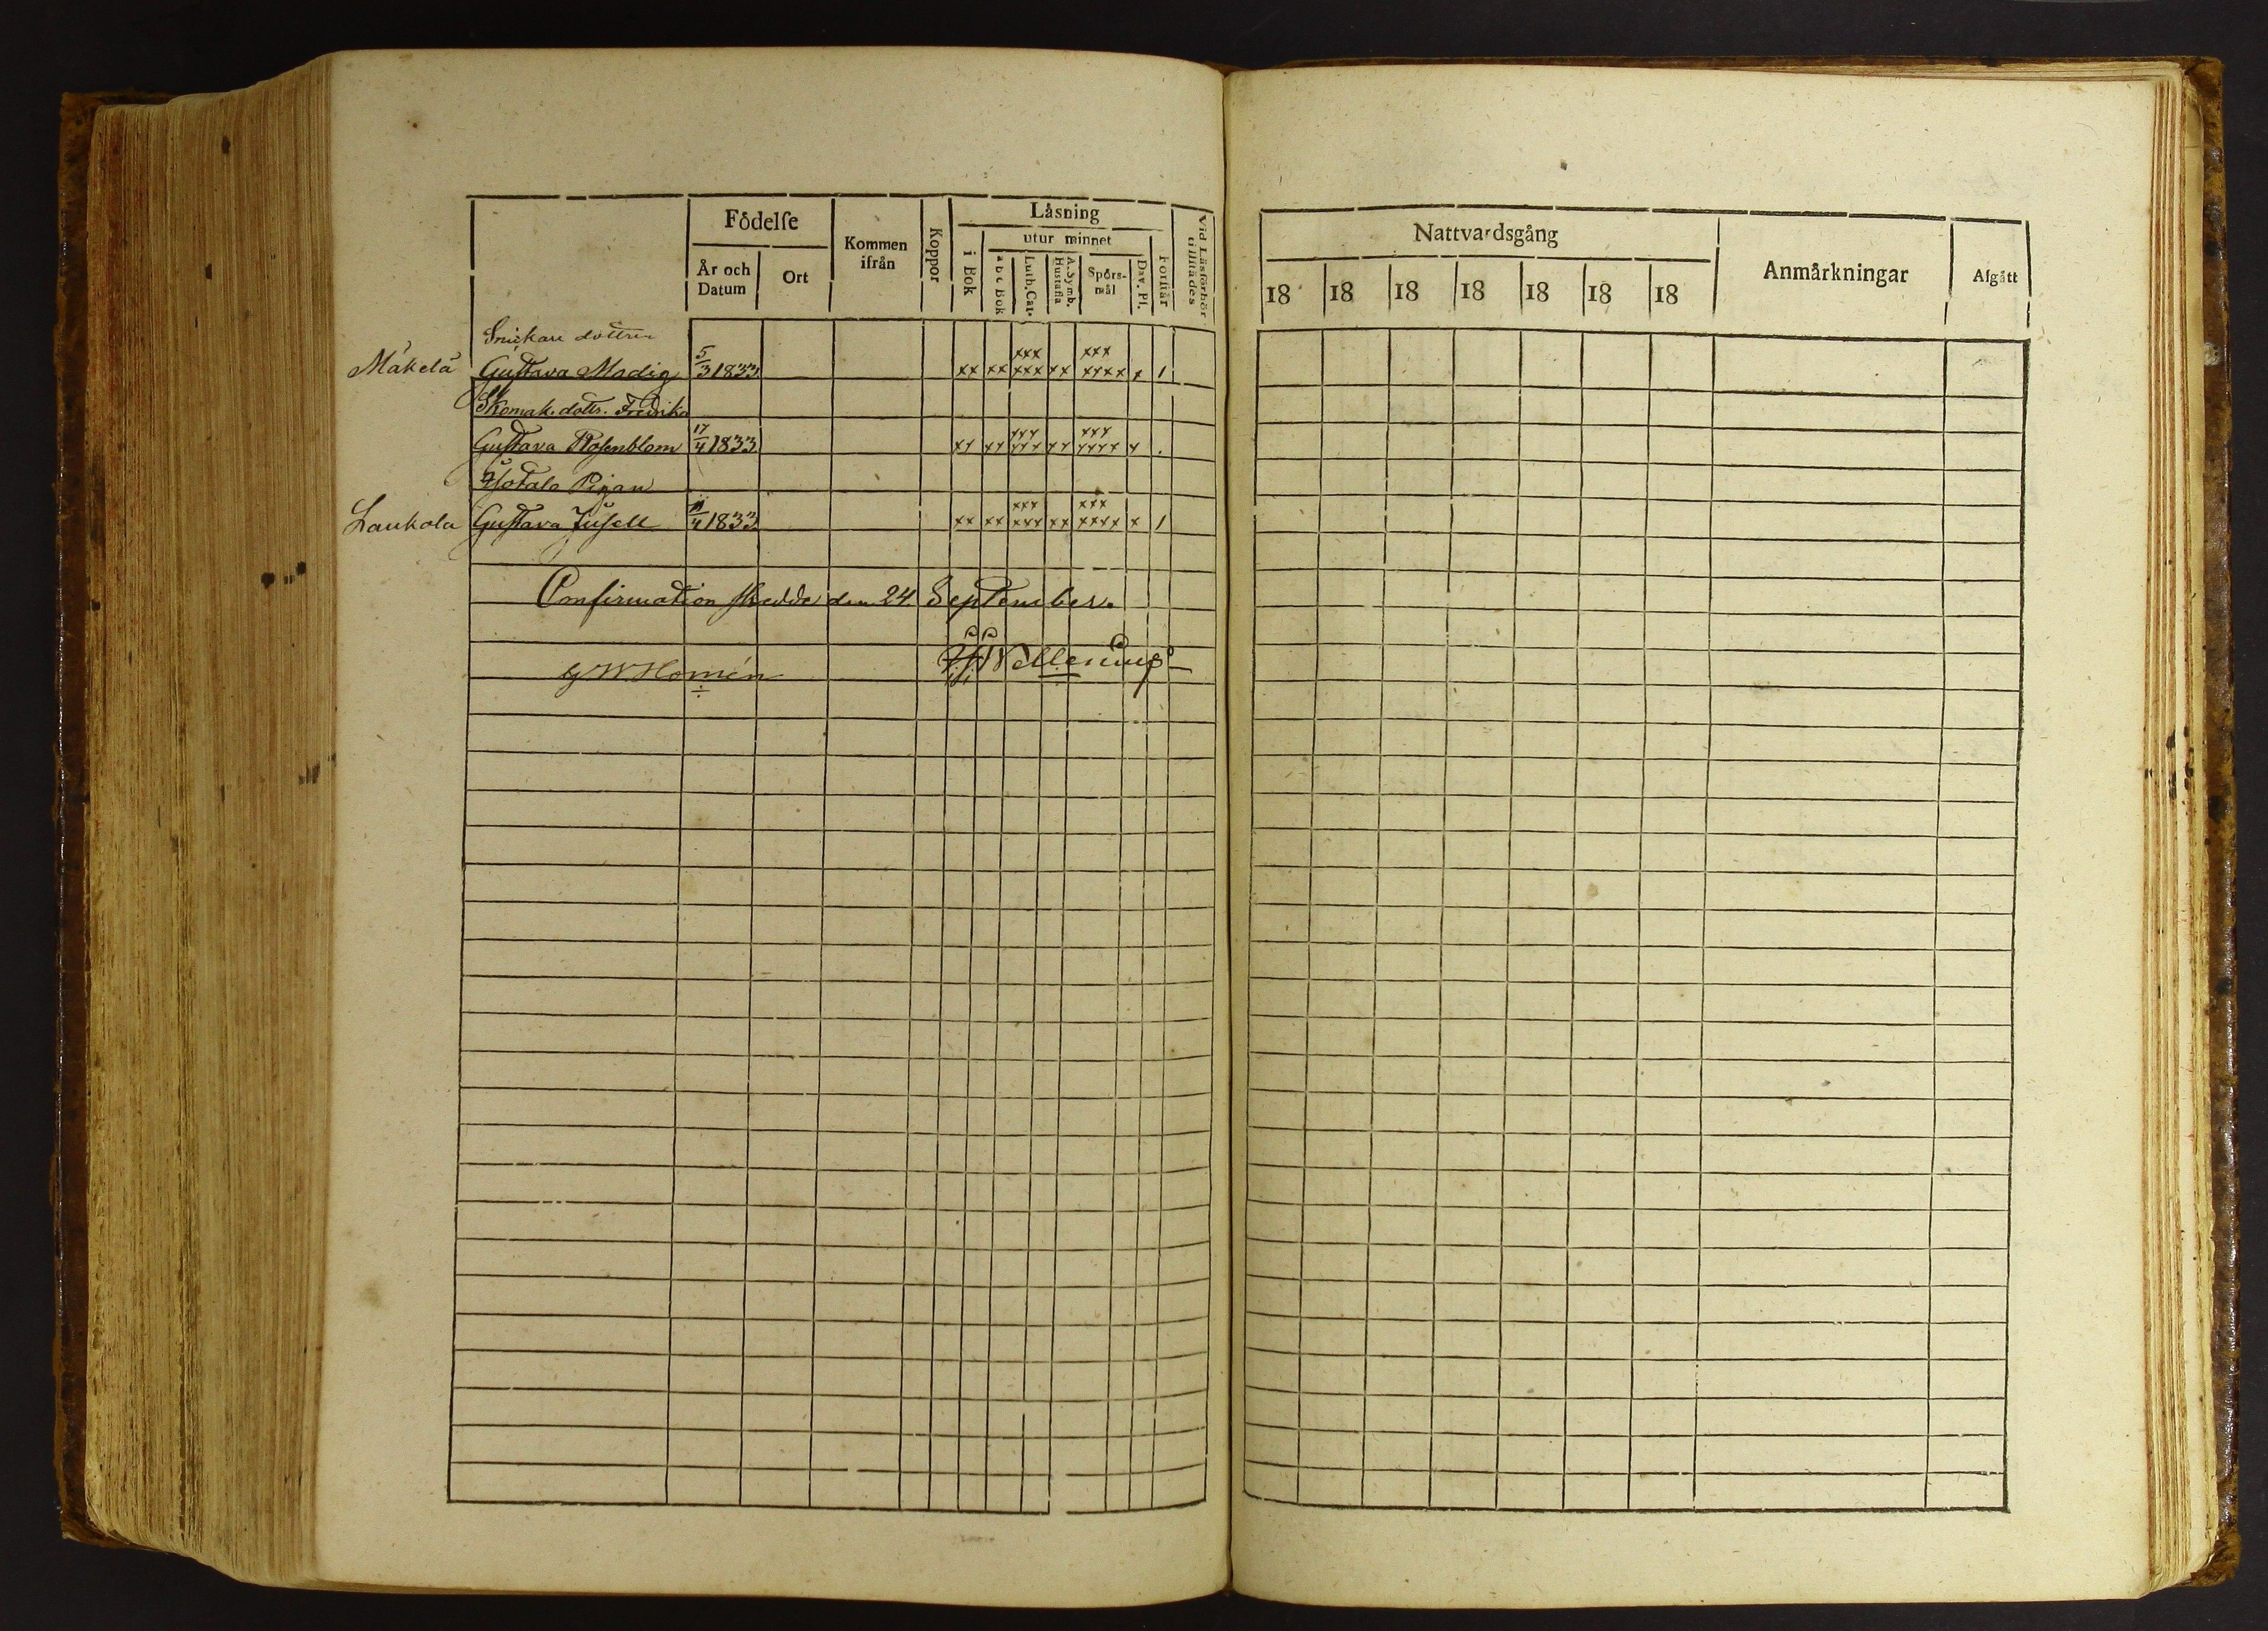 Födelse
År och Datum
Ort
Kommen ifrån
Koppor
Läsning
i Bok
utur minnet
abc Bok
Luth. Cat.
A. Symb. Hustafla
Spörs-mål
Dav. Ps.
Förstår
Vid Läsförhör tillstädes
Nattvardsgång
18 18 18 18 18 18 18
Anmärkningar
Afgått
Snickare dottren
Mäkelä Gustava Madig 5/3 1833 xx xx xxx xxx xx xxx xxxx x 1
Skomak. dottr. Fredrika
Gustava Rosenblom 17/4 1833 xx xx xxx xxx xx xxx xxxx x
Pigan
Laukola Gustava Jusell 4 1833 xx xx xxx xxx xx xxx xxxx x 1
Confirmation skedde den 24 September.
G W Homén
Wellenius